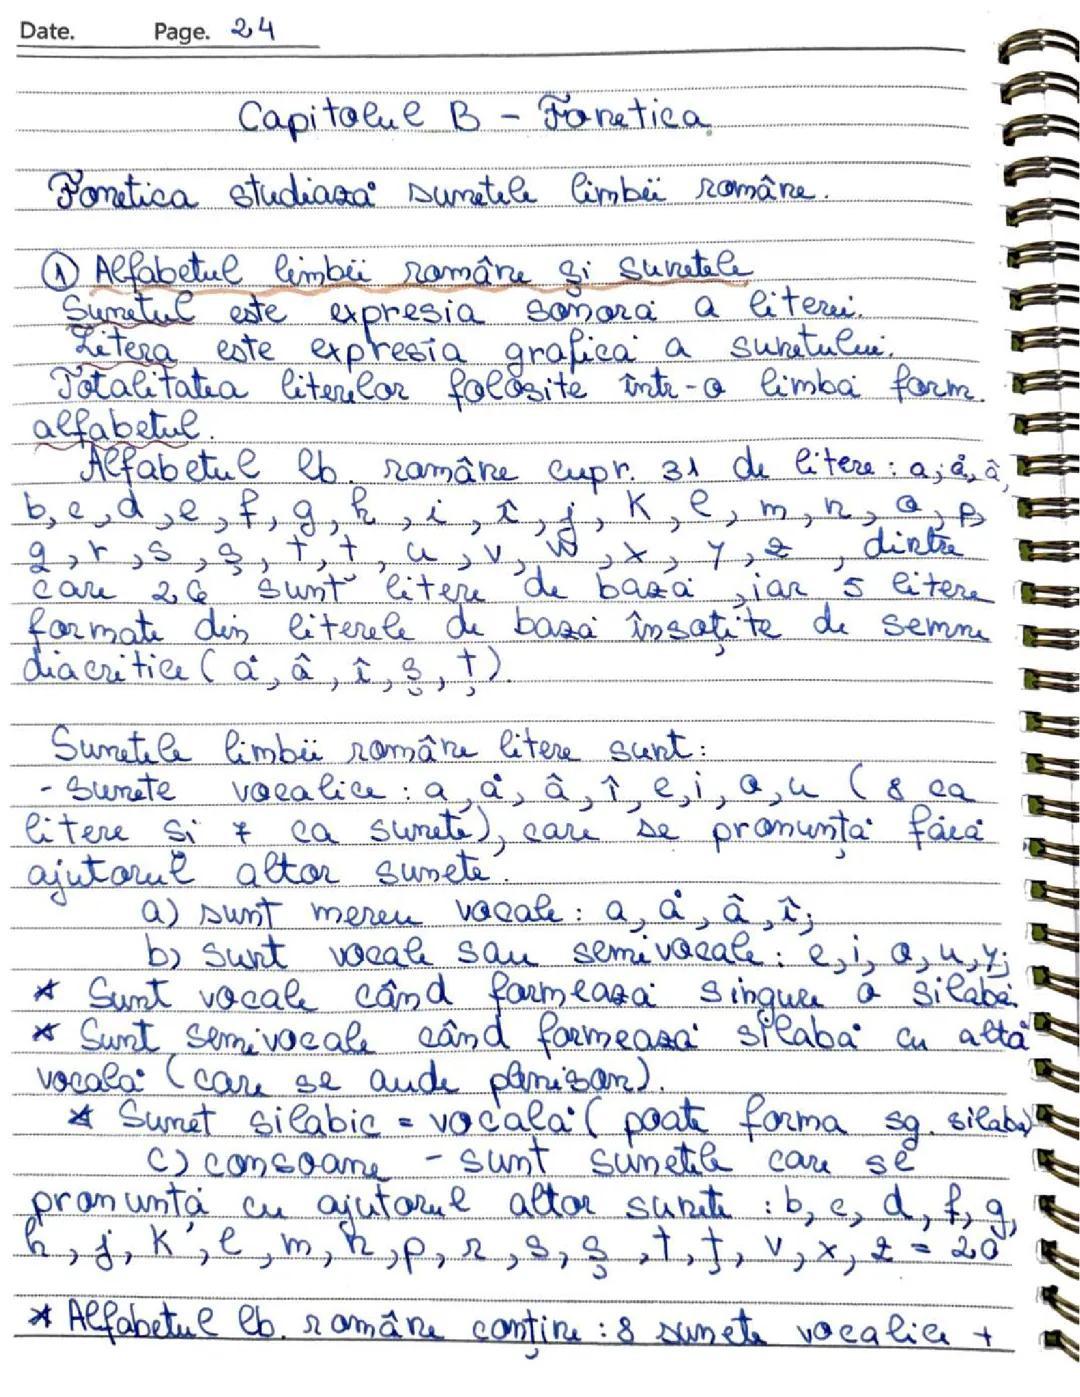 Date. Page. 24
Capitolul B - Fonetica
Fonetica studiază sunetele limbii române.
① Alfabetul limbii române și sunetele
Sunetul este expresia sonoră a literei.
Litera este expresia grafică a sunetului.
Totalitatea literelor folosite într-o limbă form.
alfabetul.
Alfabetul lb. române cupr. 31 de litere: a, ă, â,
b, c, d, e, f, g, h, i, î, j, K, l, m, n, o, p,
q, r, s, ș, t, ț, u, v, w, x, y, z, dintre
care 26 sunt litere de bază, iar 5 litere
formate din literele de bază însoțite de semne
diacritice (ă, â, î, ș, ț).
Sunetele limbii române litere sunt:
- sunete vocalice: a, ă, â, î, e, i, o, u (8 ca
litere și 7 ca sunete), care se pronunță fără
ajutorul altor sunete.
a) sunt mereu vocale: a, ă, â, î;
b) sunt vocale sau semivocale: e, i, o, u, y;
* Sunt vocale când formează singure o silabă.
* Sunt semivocale când formează silabă cu altă
vocală (care se aude).
* Sunet silabic = vocală (poate forma sg. silabă)
c) consoane - sunt sunetele care se
pronunță cu ajutorul altor sunete: b, c, d, f, g,
h, j, K, l, m, n, p, r, s, ș, t, ț, v, x, z = 20
* Alfabetul lb. române conține: 8 sunete vocalice +